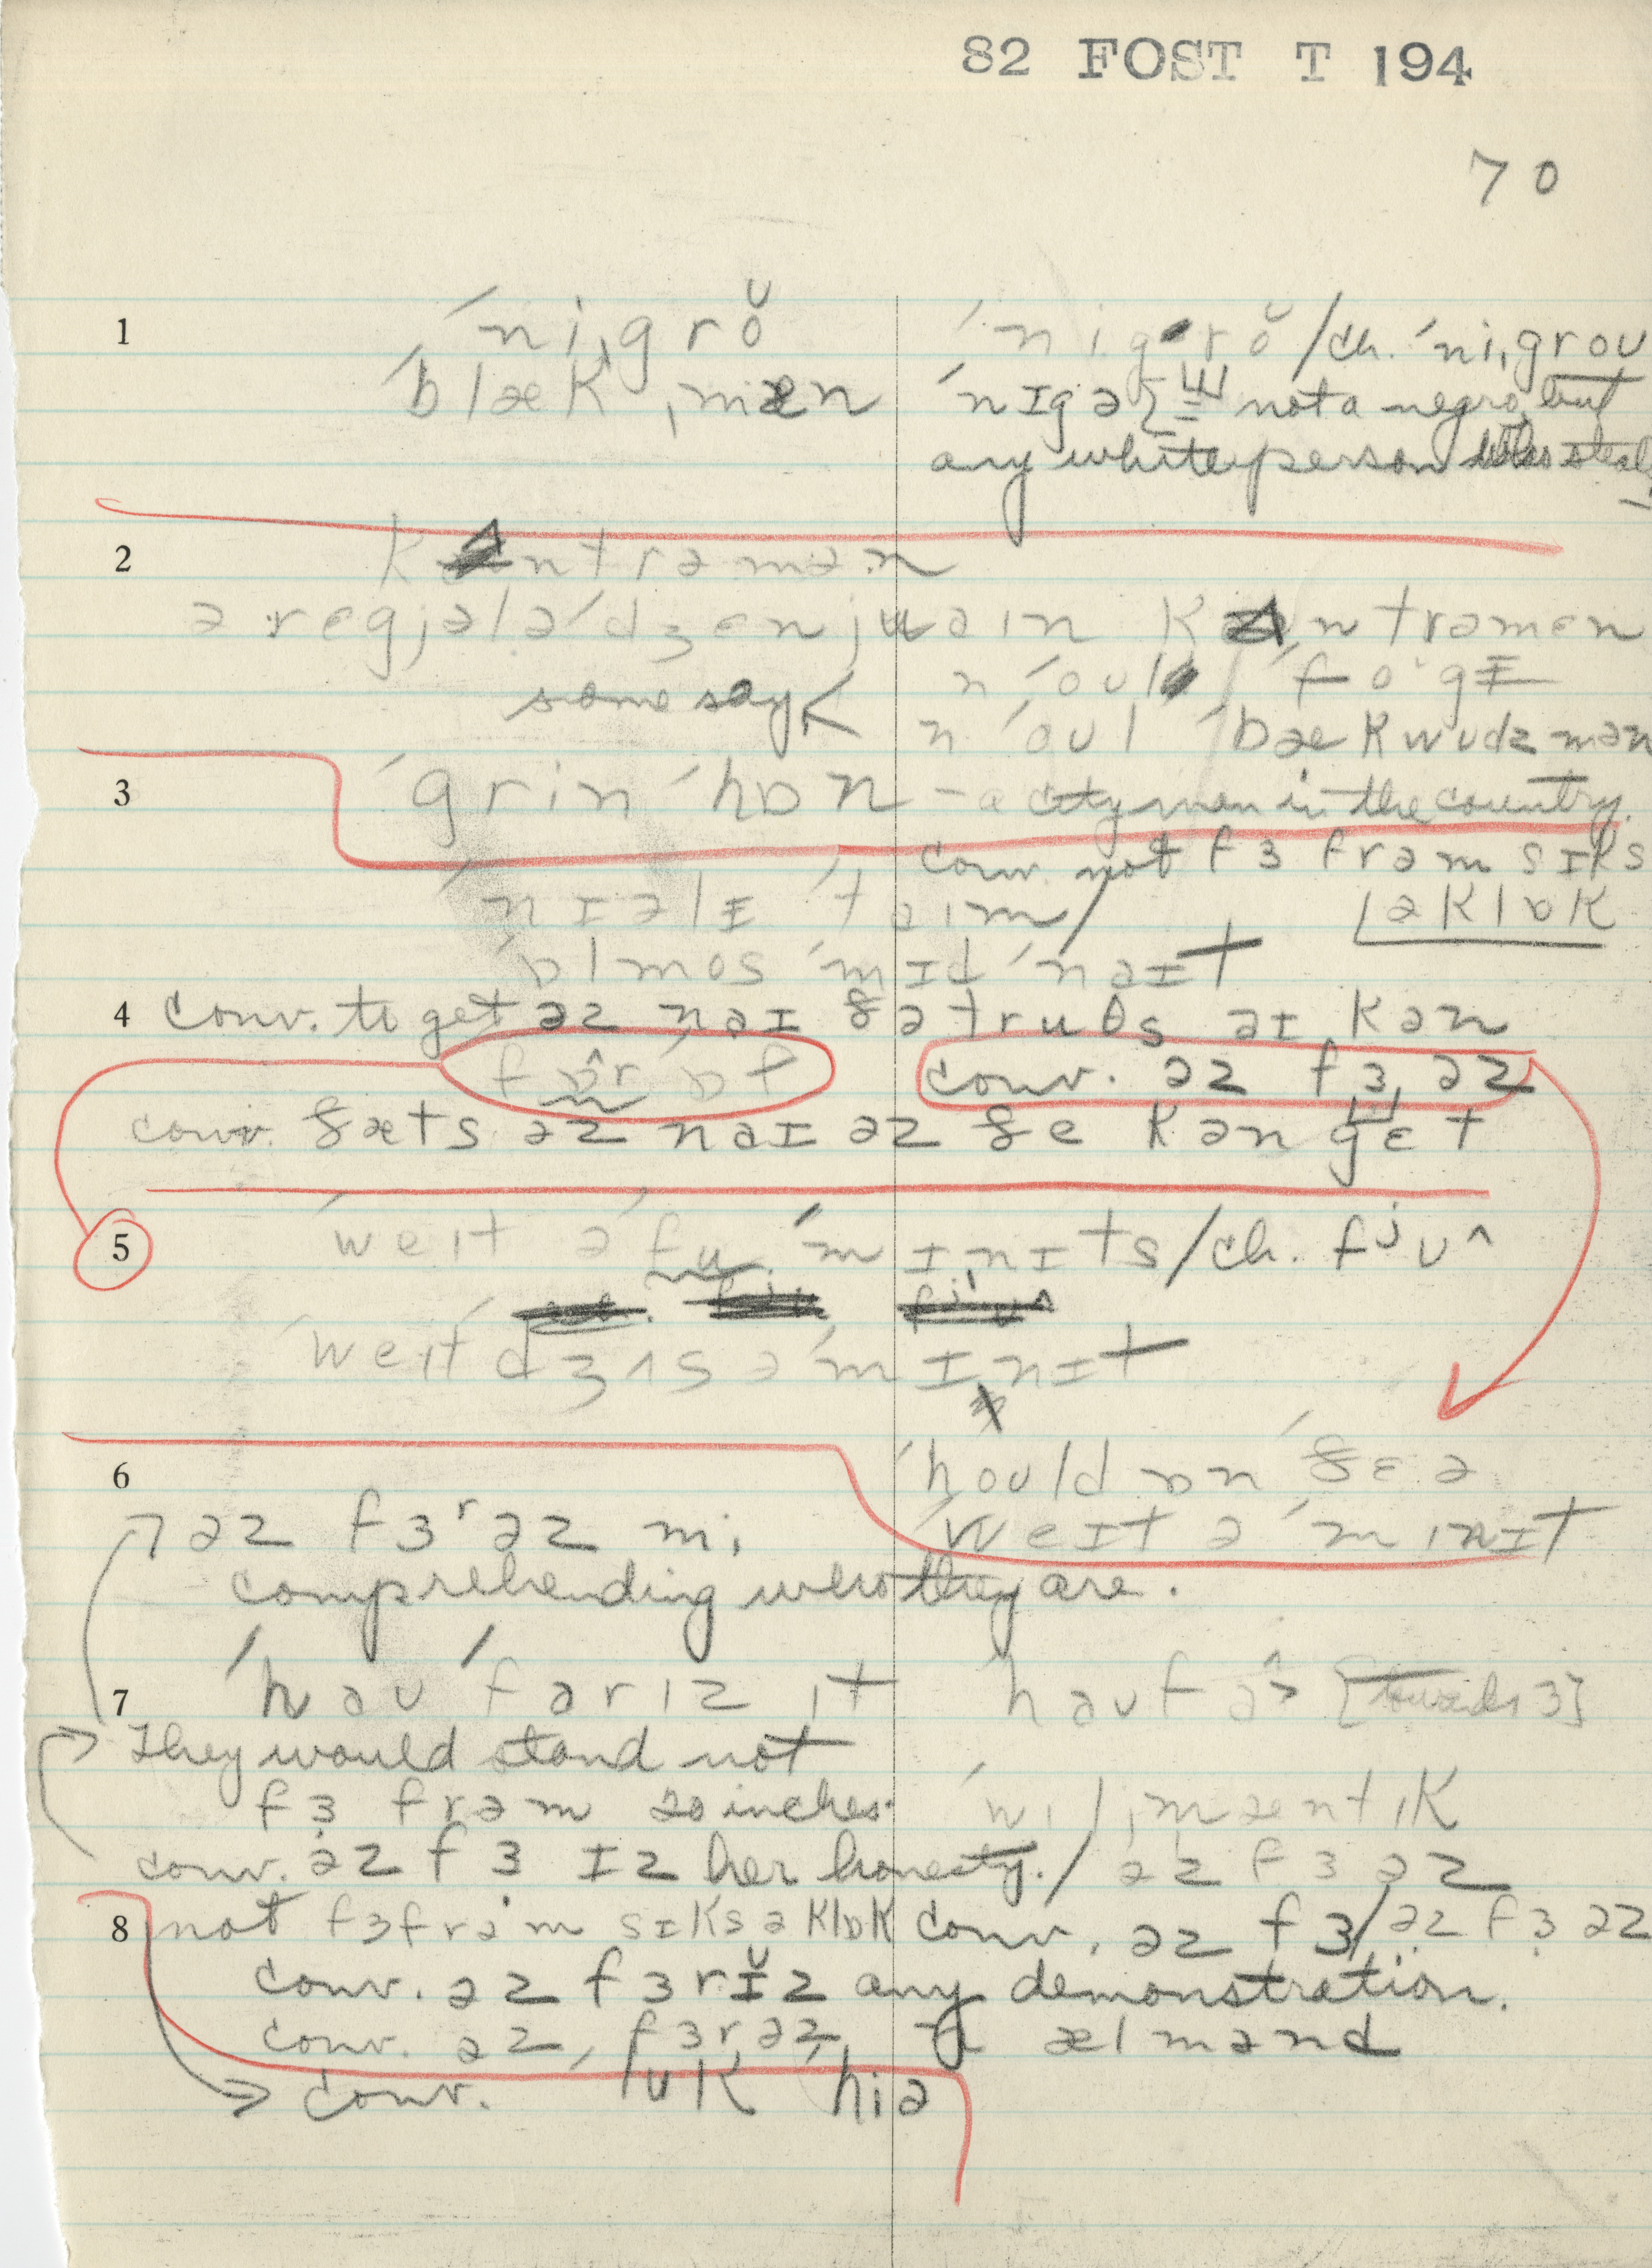 82 FOST T 194
70
1 ˈniˌgrŏ ˈnigrŏ / ch. ˈniˌgrou
ˈblæk ˌmæn ˈnɪgə not a negro, but
any white person who steals
2 kʌntrəmən
ə regjələ ˈdʒenjuəin kʌntrəmən
some say < n ˈoul ˈfogɪ
n ˈoul ˈbækwudzmən
3 ˈgrin ˈhɒn – a city man in the country.
conv. not fɜ frəm sɪks
əklɒk
ˈnɪəlɪ ˈtaim /
ˈɒlmos ˈmɪd ˈnaɪt
4 conv. to get əz naɪ ðə truθs aɪ kən
fɒ̂r ɒf conv. əz fɜ, əz
conv. ðæts əz naɪ əz ðe kən gɛt
5 ˈweit ə ˈfu ˈmɪnɪts / ch. fʲu^
ˈweit dʒʌs ə ˈmɪnɪt
6 ˈhould ɒn ˈðɛə
ˈweɪt ə ˈminɪt
əz fɜʳ əz mi
comprehending who they are.
7 ˈhau ˈfar iz it hau fɑ̂> [towards ɜ]
They would stand not
fɜ frəm 20 inches.
ˈwilˌmæntik
conv. əz fɜ ɪz her honesty. / əz fɜ əz
8 not fɜ frəm sɪks əklɒk conv. əz fɜ / əz fɜ əz
conv. əz fɜrɪ̆z any demonstration.
conv. əz, fɜr, əz ælmənd
conv. luk hiə